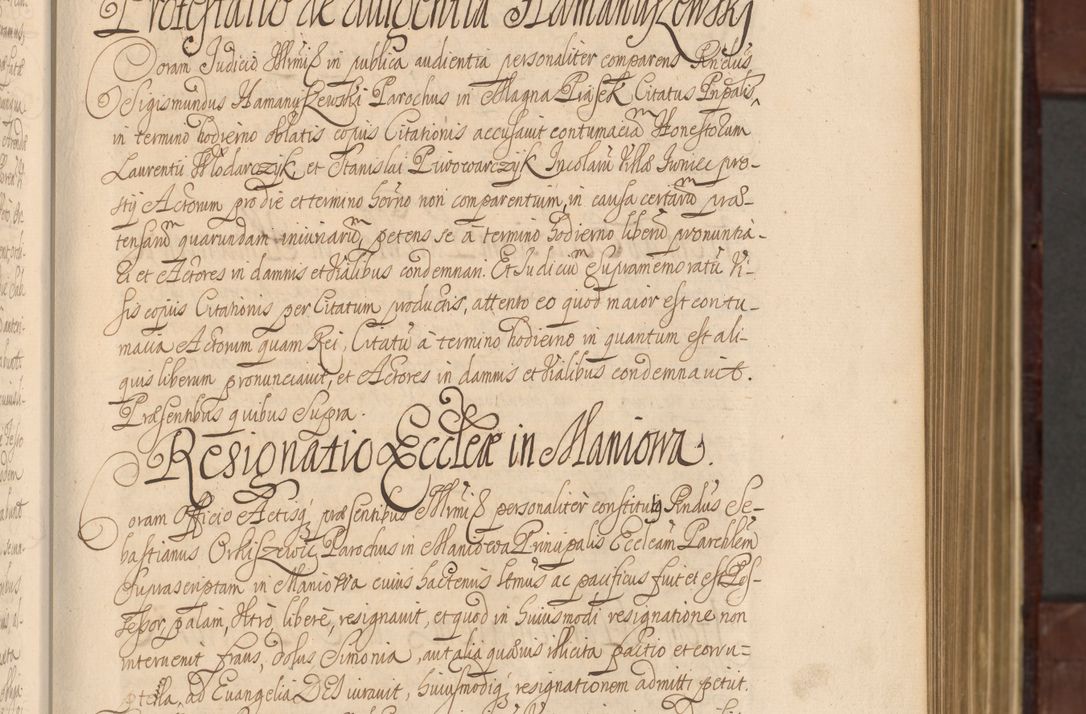 Protestatio de audientia Hamanyszewskj
Coram Judicio Illrmiß in publica audientia personaliter comparens Rndus
Sigismundus Hamanyszewskj Parochus in Magna Piasek Citatus Prnpalis,
in termino hodierno oblatis copijs Citationis accusavit contumaciam Honestorum
Laurentij Włodarczÿk et Stanislai Piwowarczÿk Incolarũ Villæ Jwniec pro-
stij Actorum pro die et termino horno non comparentium, in causa certarũ præ-
tensarũ quarundam iniuriarũ, petens se à termino hodierno liberũ pronuntia-
ri et Actores in damnis et vialibus condemnari. Et Judiciũ supramemoratũ vi-
sis copijs Citationis per Citatum productis, attento eo quod maior est contu-
macia Actorum quam Rei, Citatũ à termino hodierno in quantum est ali-
quis liberum pronunciavit, et Actores in damnis et vialibus condemnavit.
Præsentibus quibus supra.
Resignatio Ecclæ in Maniowa.
Coram Officio Actisq; præsentibus Illrmiß personaliter constitutus Rndus Se-
bastianus Orkiszewic Parochus in Maniowa Principalis Ecclãm Parchlem
suprascriptam in Maniowa cuius hactenus ltmus ac pacificus fuit et est Pos-
sessor, palam, Vltrò, liberè, resignavit, et quod in huiusmodi resignatione non
intervenit fraus, dolus Simonia, aut alia quævis illicita pactio et corru-
ptella, ad Evangelia DEI iuravit, huiusmodiq; resignationem admitti petijt.